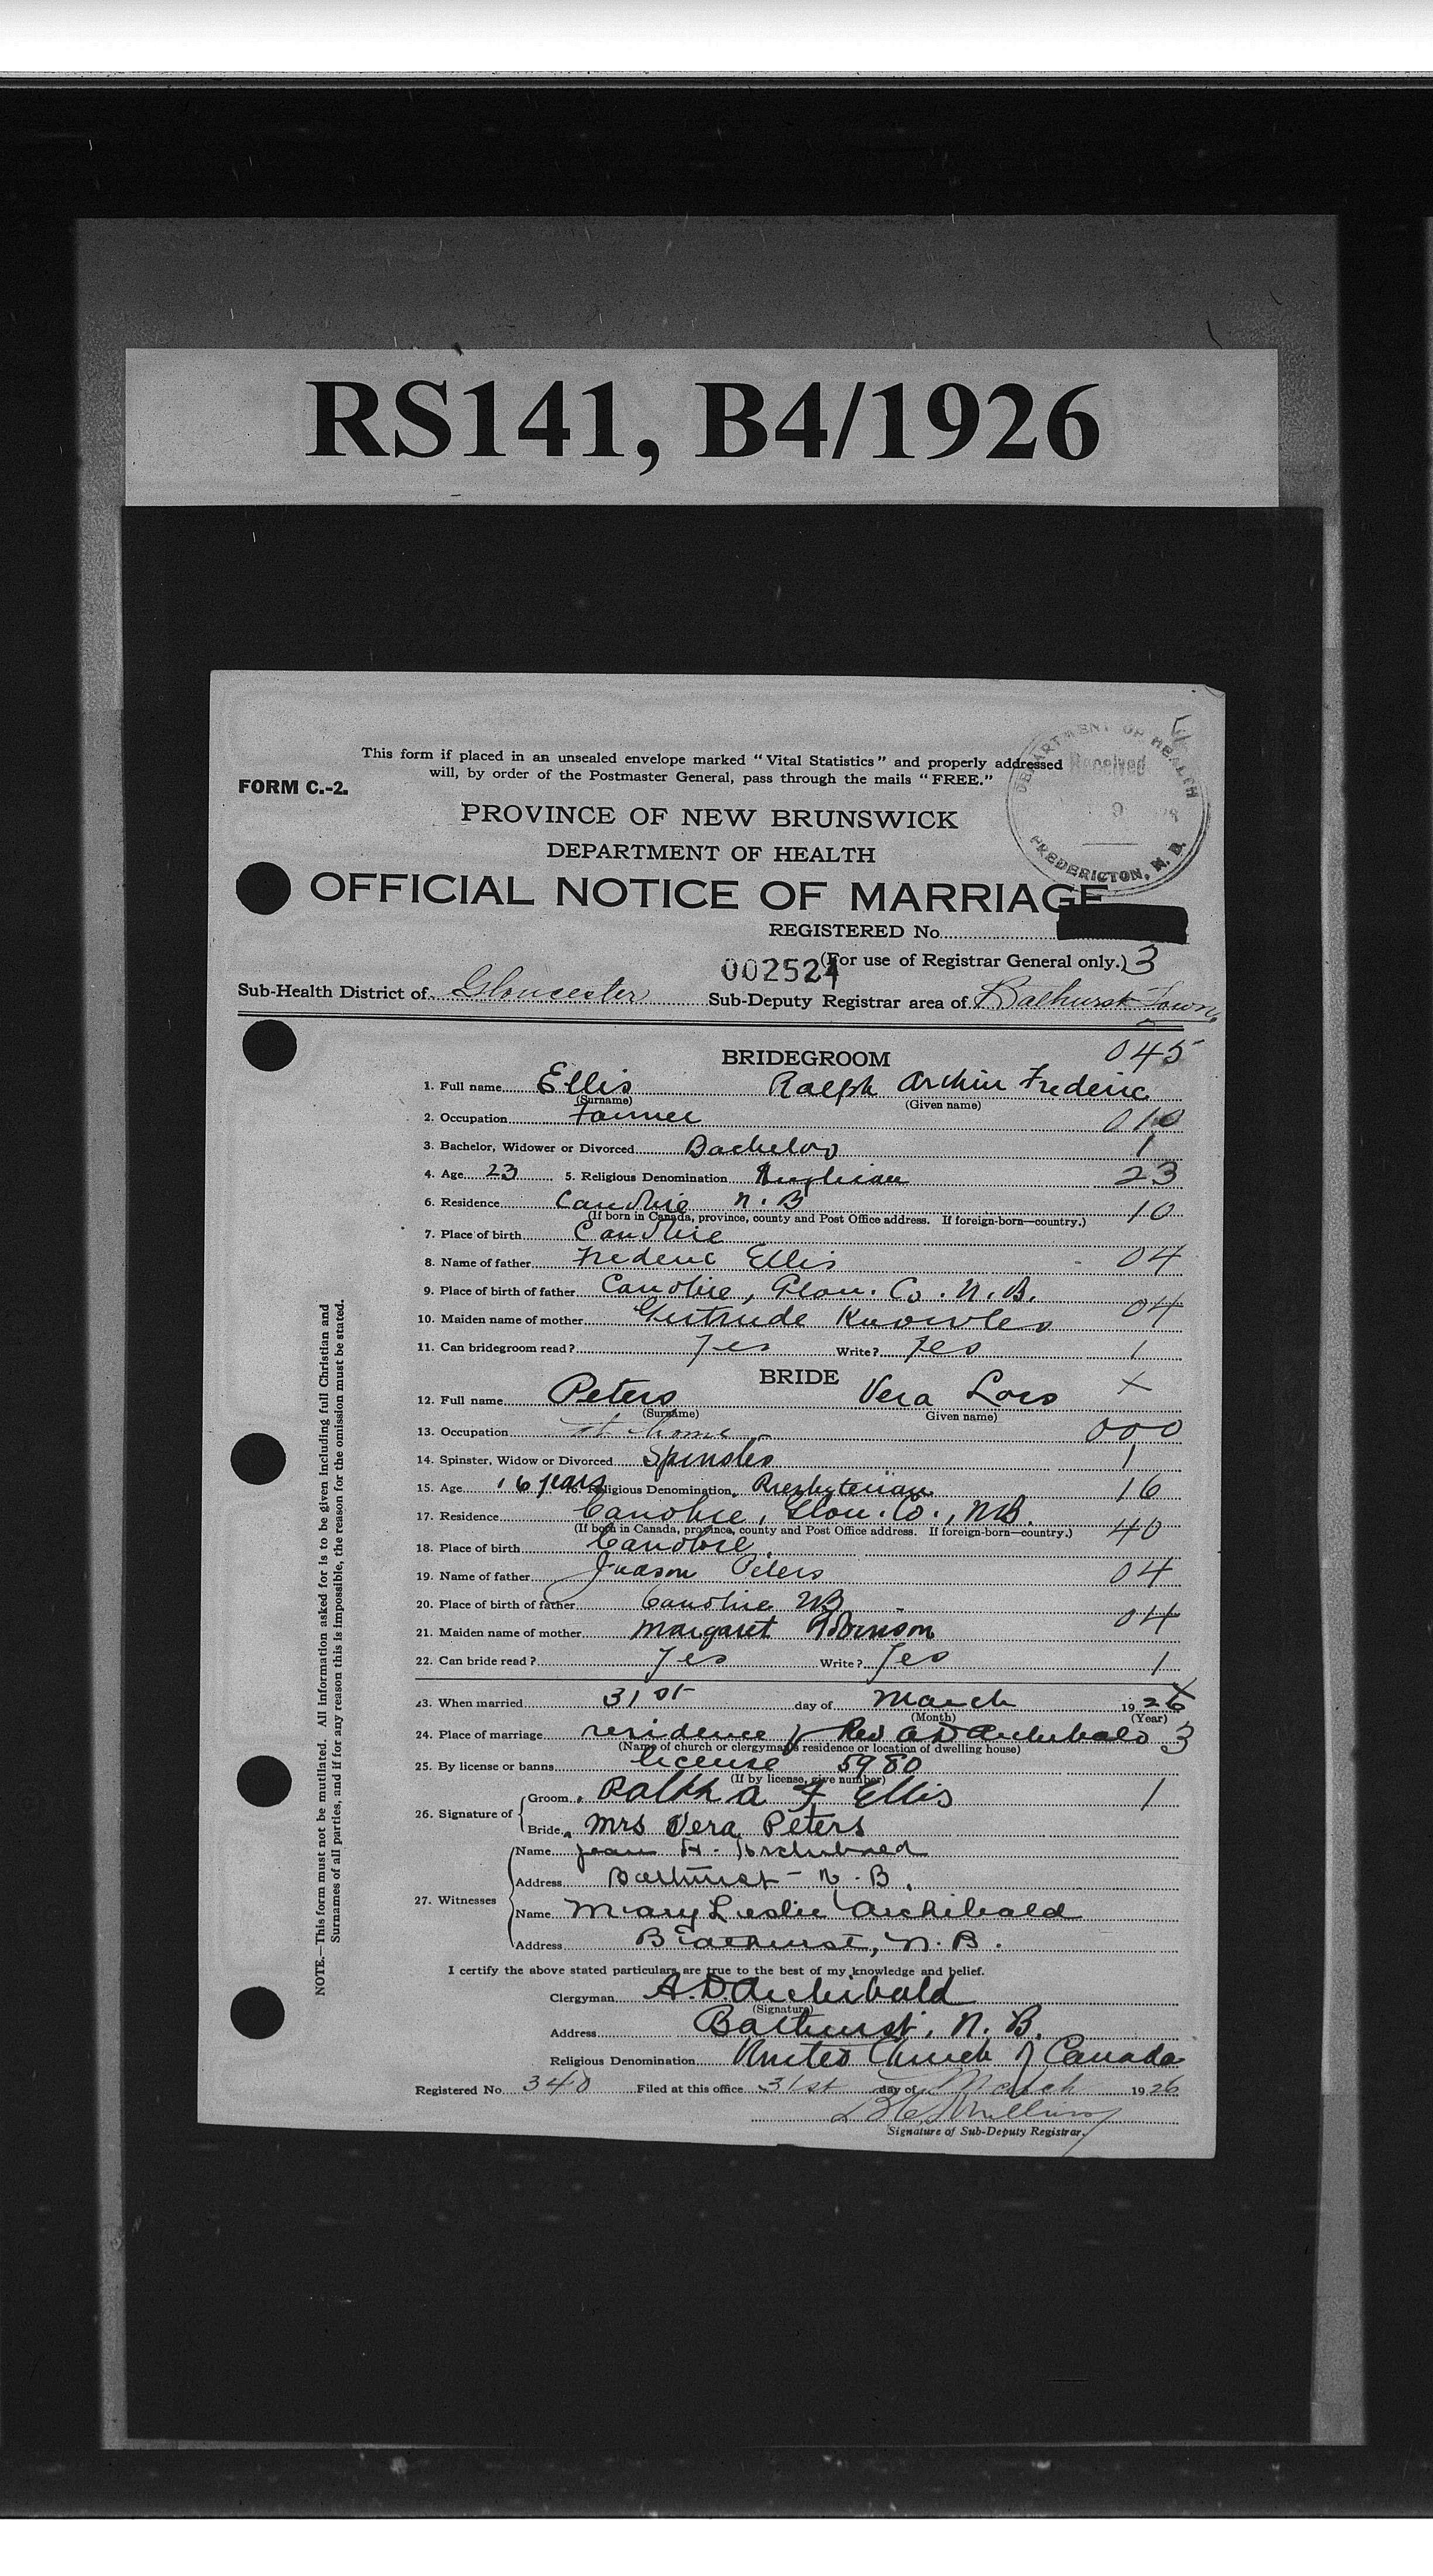 RS141, B4/1926
This form if placed in an unsealed envelope marked "Vital Statistics" and properly addressed
will, by order of the Postmaster General, pass through the mails "FREE."
FORM C.-2.
DEPARTMENT OF HEALTH
Received
9
FREDERICTON, N. B.
PROVINCE OF NEW BRUNSWICK
DEPARTMENT OF HEALTH
OFFICIAL NOTICE OF MARRIAGE
REGISTERED No.
002524 (For use of Registrar General only.) 3
Sub-Health District of Gloucester Sub-Deputy Registrar area of Bathurst Town
BRIDEGROOM 045
1. Full name Ellis Ralph Archie Frederic
(Surname) (Given name)
2. Occupation Farmer 010
3. Bachelor, Widower or Divorced Bachelor 1
4. Age 23 5. Religious Denomination Anglican 23
6. Residence Canobie N.B 10
(If born in Canada, province, county and Post Office address. If foreign-born—country.)
7. Place of birth Canobie
8. Name of father Frederic Ellis 04
9. Place of birth of father Canobie, Glou. Co. N.B.
10. Maiden name of mother Gertrude Knowles 04
11. Can bridegroom read? Yes Write? Yes 1
BRIDE X
12. Full name Peters Vera Lois
(Surname) Given name)
13. Occupation at home 000
14. Spinster, Widow or Divorced Spinster 1
15. Age 16 years 16. Religious Denomination Presbyterian 16
17. Residence Canobie, Glou. Co., NB. 40
(If born in Canada, province, county and Post Office address. If foreign-born—country.)
18. Place of birth Canobie
19. Name of father Judson Peters 04
20. Place of birth of father Canobie NB
21. Maiden name of mother Margaret 04
22. Can bride read? Yes Write? Yes 1
23. When married 31st day of March 1926 X
(Month) (Year)
24. Place of marriage residence of Rev A D Archibald 3
(Name of church or clergyman's residence or location of dwelling house)
25. By license or banns license 5980
(If by license, give number)
26. Signature of Groom Ralph A F Ellis 1
Bride Mrs Vera Peters
27. Witnesses
Name Jean H. Archibald
Address Bathurst - N.B.
Name Mary Leslie Archibald
Address Bathurst, N.B.
I certify the above stated particulars are true to the best of my knowledge and belief.
Clergyman A. D. Archibald
(Signature)
Address Bathurst, N. B.
Religious Denomination United Church of Canada
Registered No. 340 Filed at this office 31st day of March 1926
Signature of Sub-Deputy Registrar.
NOTE.—This form must not be mutilated. All information asked for is to be given including full Christian and
Surnames of all parties, and if for any reason this is impossible, the reason for the omission must be stated.